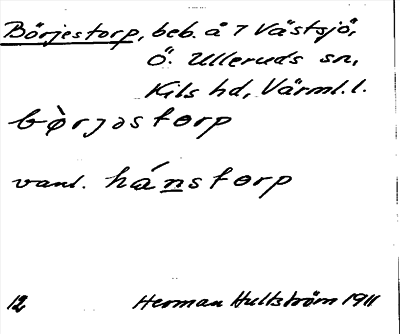 Börjestorp, beb. å 7 Västsjö,
Ö. Ulleruds sn,
Kils hd, Värml. l.
bò̖rjəstɵrp
vanl. hánstɵrp
12 Herman Hultström 1911